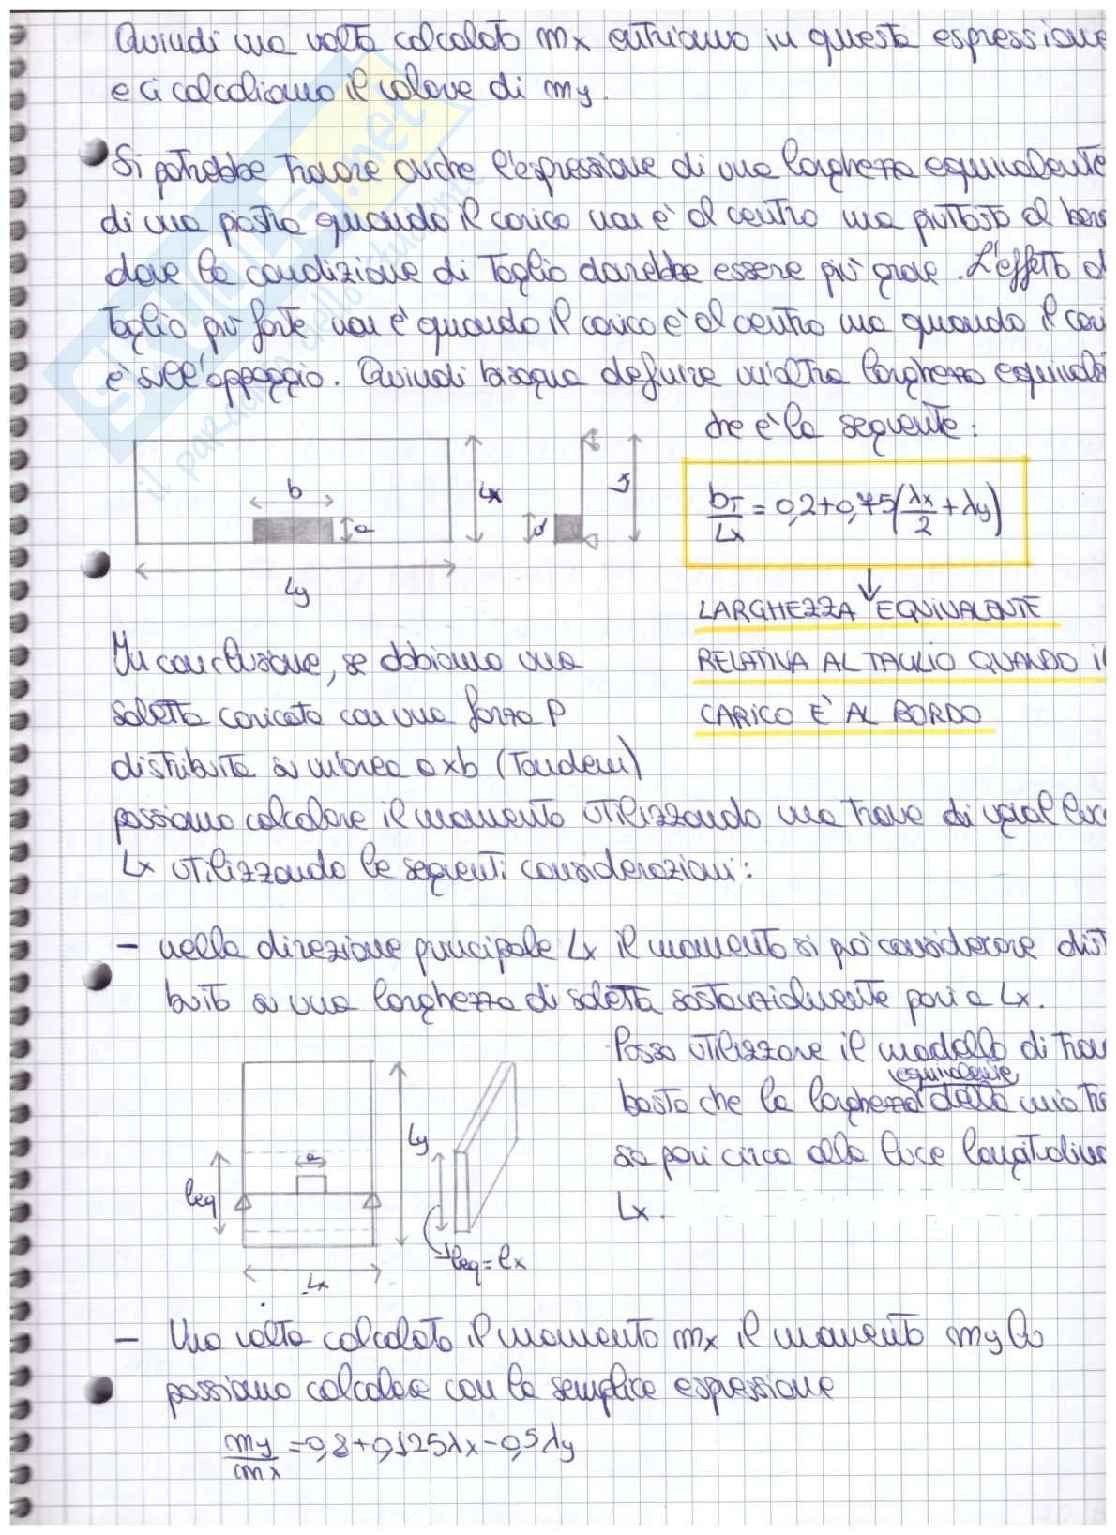 Quindi una volta calcolato mx entriamo in questa espressione
e ci calcoliamo il valore di my.
Si potrebbe trovare anche l'espressione di una larghezza equivalente
di una piastra quando il carico non è al centro ma piuttosto al bor
dove la condizione di taglio darebbe essere più grave. L'effetto d
taglio più forte non è quando il carico è al centro ma quando il cari
è sull'appoggio. Quindi bisogna definire un'altra larghezza equivale
che è la seguente:
b
Lx
a
Ly
bT/Lx = 0,2+0,75(λx/2+λy)
LARGHEZZA EQUIVALENTE
RELATIVA AL TAGLIO QUANDO il
CARICO E' AL BORDO
In conclusione, se abbiamo una
soletta caricata con una forza P
distribuita su un'area axb (Tandem)
possiamo calcolare il momento utilizzando una trave di ugual luce
Lx utilizzando le seguenti considerazioni:
- nella direzione principale Lx il momento si può considerare dist
buito su una larghezza di soletta sostanzialmente pari a Lx.
Posso utilizzare il modello di trav
equivalente
basta che la larghezza della mia tra
sia pari circa alla luce longitudina
Lx.
a
leq
Ly
leq=lx
Lx
- Una volta calcolato il momento mx il momento my lo
possiamo calcolare con la semplice espressione
my/mx = 0,8+0,125λx-0,5λy
skuola.net